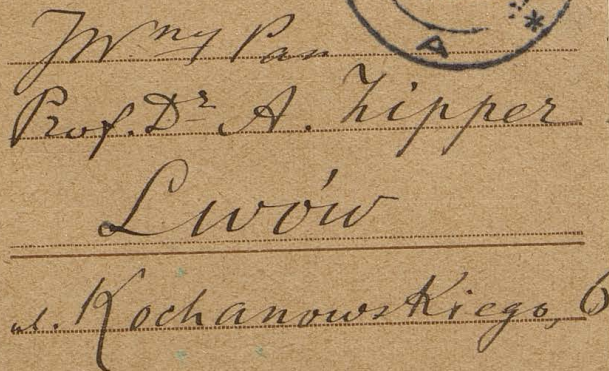 JWny Pan
Prof. Dr A. Zipper
Lwów
ul. Kochanowskiego, 6
A